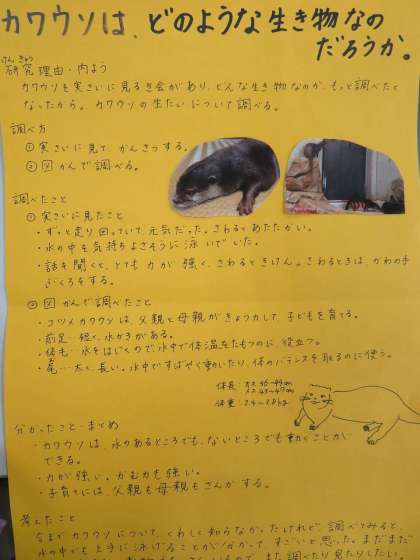 カワウソは、どのような生き物なの
だろうか。
けんきゅう
研究理由・内よう
カワウソを実さいに見るき会があり、どんな生き物なのか、もっと調べたく
なったから。カワウソの生たいについて調べる。
調べ方
①実さいに見て、かんさつする。
②図かんで調べる。
調べたこと
①実さいに見たこと
・ずっと走り回っていて、元気だった。さわるとあたたかい。
・水の中を気持ちよさそうに泳いでいた。
・話を聞くと、とても力が強く、さわるときけん。さわるときは、かわの手
ぶくろをする。
②図かんで調べたこと
・コツメカワウソは、父親と母親がきょう力して、子どもを育てる。
・前足…短く、水かきがある。
・体毛…水をはじくので水中で体温をたもつのに、役立つ。
・尾…太く、長い。水中ですばやく動いたり、体のバランスを取るのに使う。
体長:オス
メス
体重:2.4〜3.8kg
分かったこと・まとめ
・カワウソは、水のあるところでも、ないところでも動くことが
できる。
・力が強い。かむ力も強い。
・子育てには、父親も母親もさんかする。
考えたこと
今までカワウソについて、くわしく知らなかったけれど、調べてみると、
水の中でも上手に泳げることが分かって、すごいと思った。まだまだ